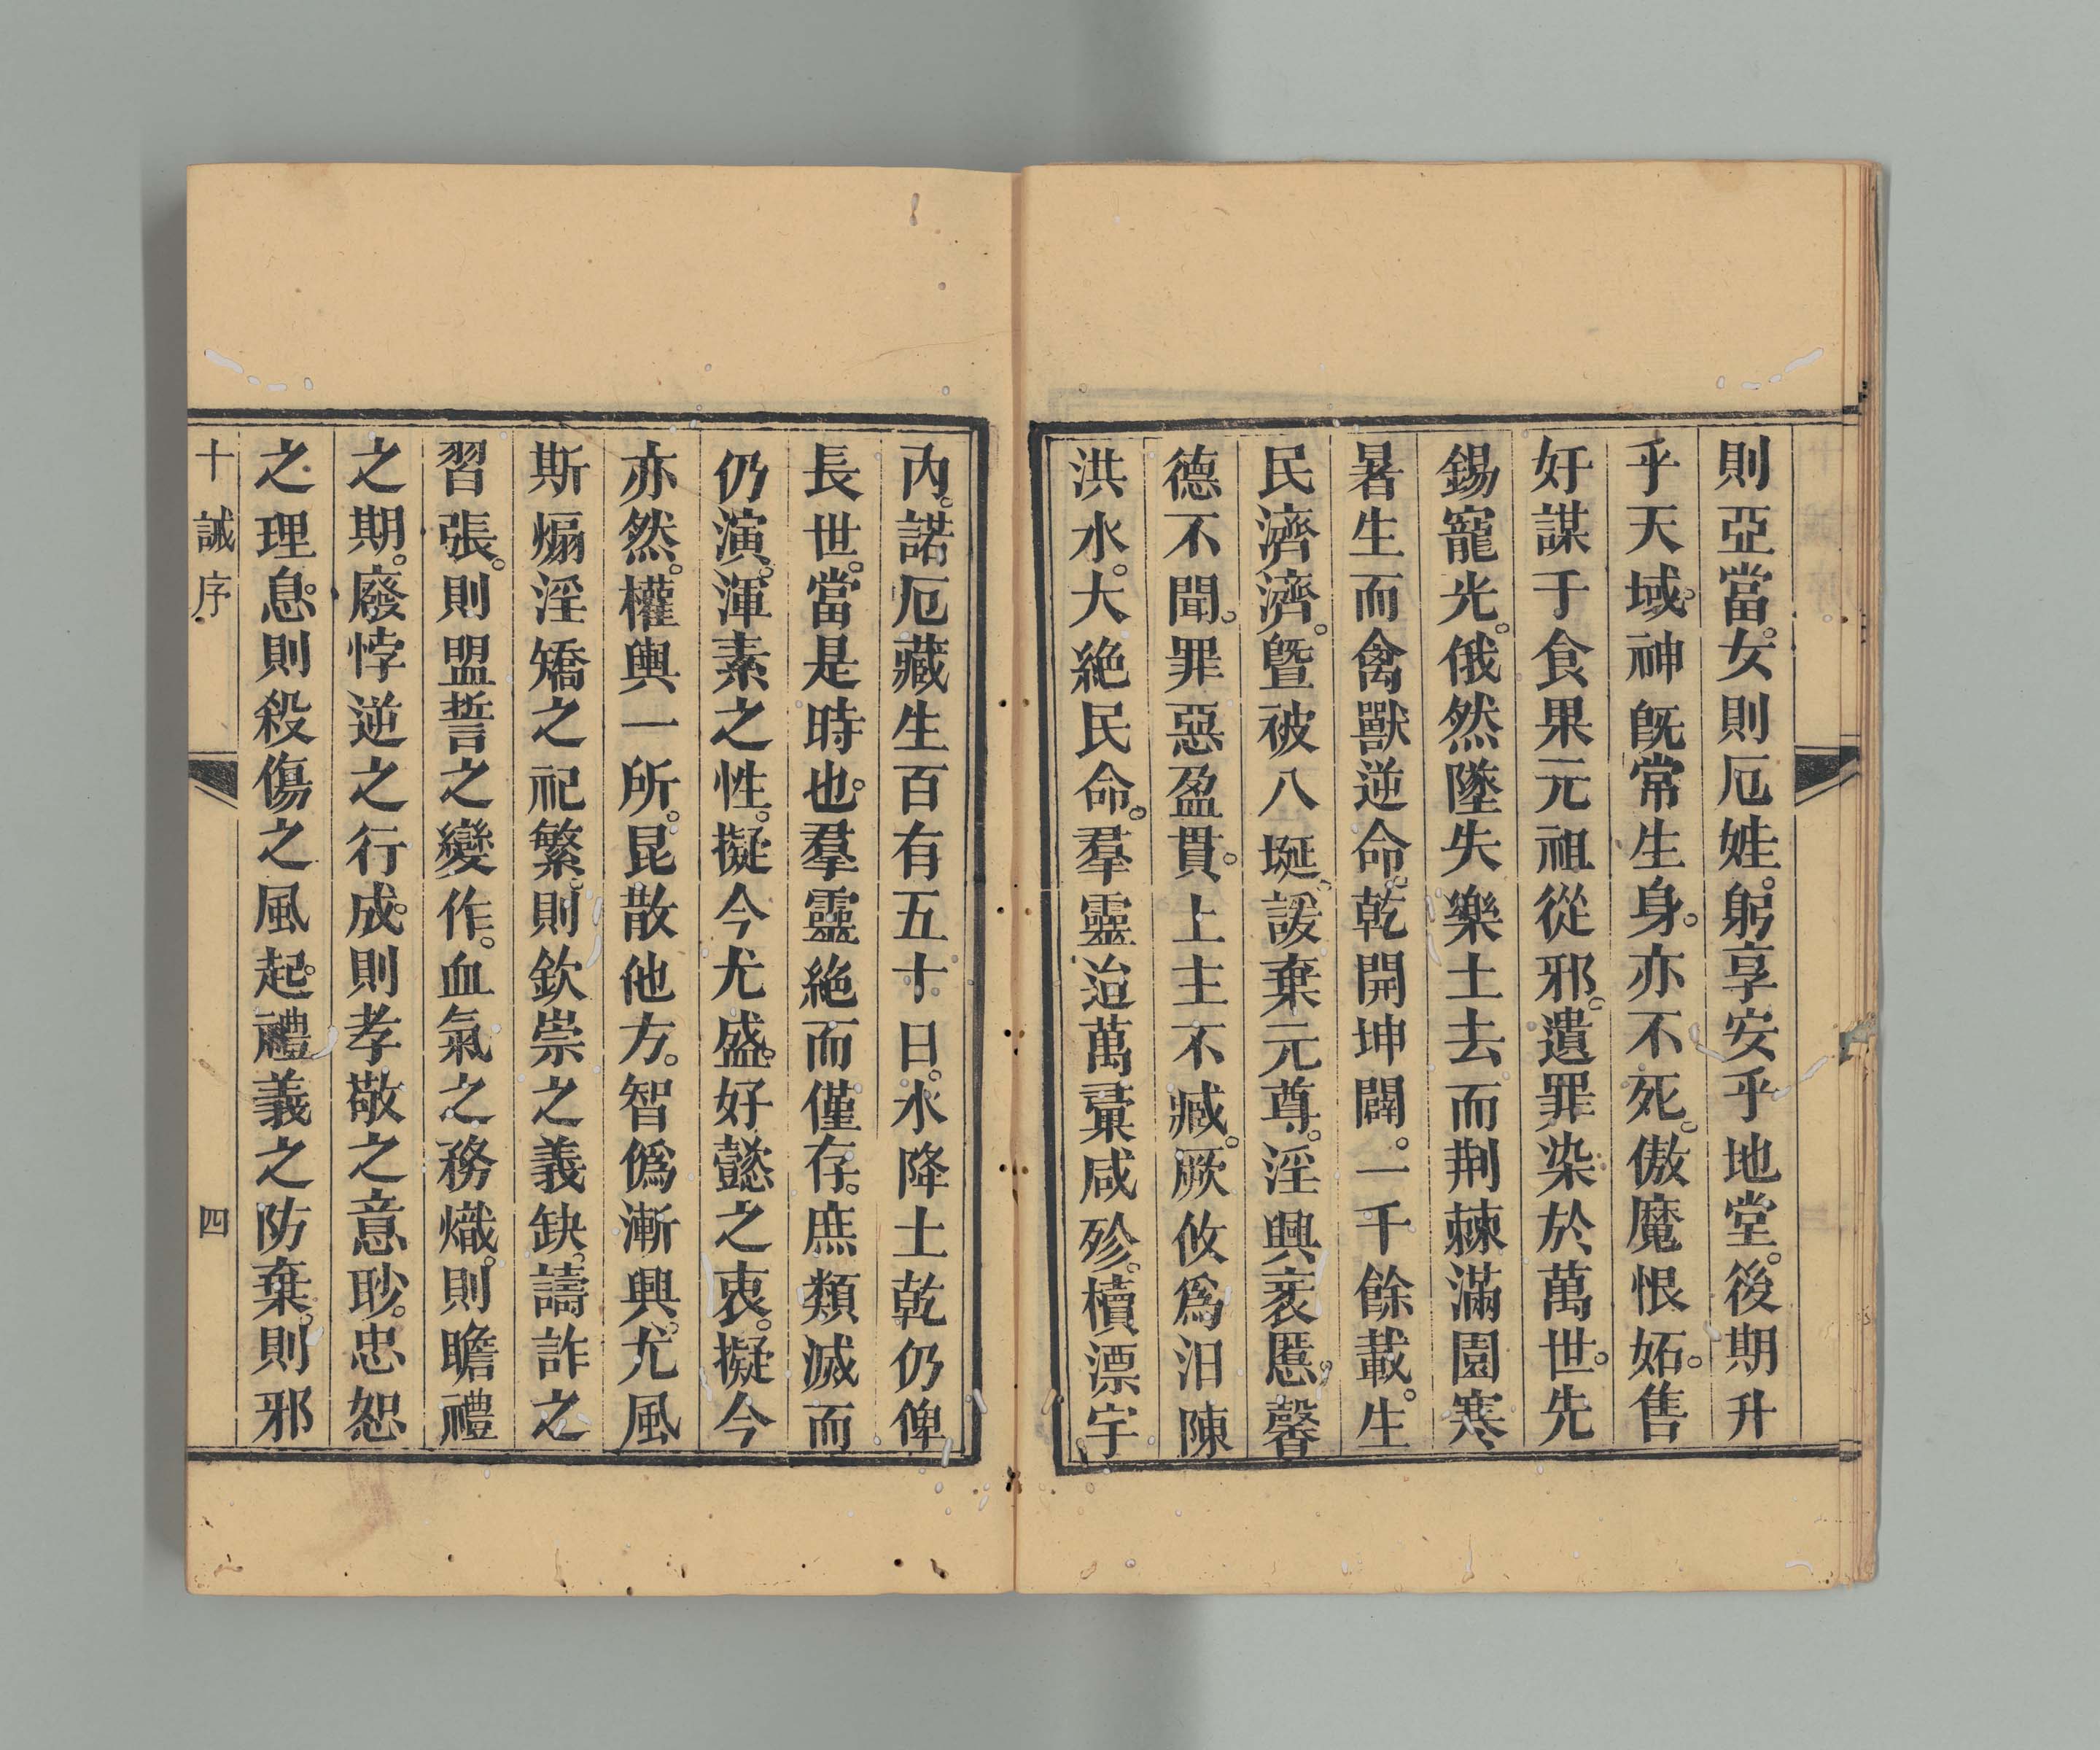 則亞當。女則厄姓。躬享安乎地堂。後期升
乎天域。神既常生身。亦不死。傲魔恨妬。售
奸謀于食果元祖從邪。遺罪染於萬世。先
錫寵光。俄然墜失樂土去而荆棘滿園寒
暑生而禽獸逆命。乾開坤闢。一千餘載。生
民濟濟。曁被八埏。諼棄元尊。淫興衺慝。馨
德不聞。罪惡盈貫。上主不臧。厥攸爲汨陳
洪水。大絶民命。羣靈治萬彙咸殄。櫝漂宇
內。諾厄藏生百有五十日。水降土乾仍俾
長世。當是時也。羣靈絶而僅存。庶類滅而
仍演。渾素之性。擬今尤盛。好懿之衷。擬今
亦然。權輿一所。昆散他方。智僞漸興。尤風
斯煽淫矯之祀繁。則欽崇之義缺。譸詐之
習張。則盟誓之變作。血氣之務熾。則瞻禮
之期。廢悖逆之行成。則孝敬之意眇。忠恕
之理息。則殺傷之風起。禮義之防棄。則邪
十誡序 四